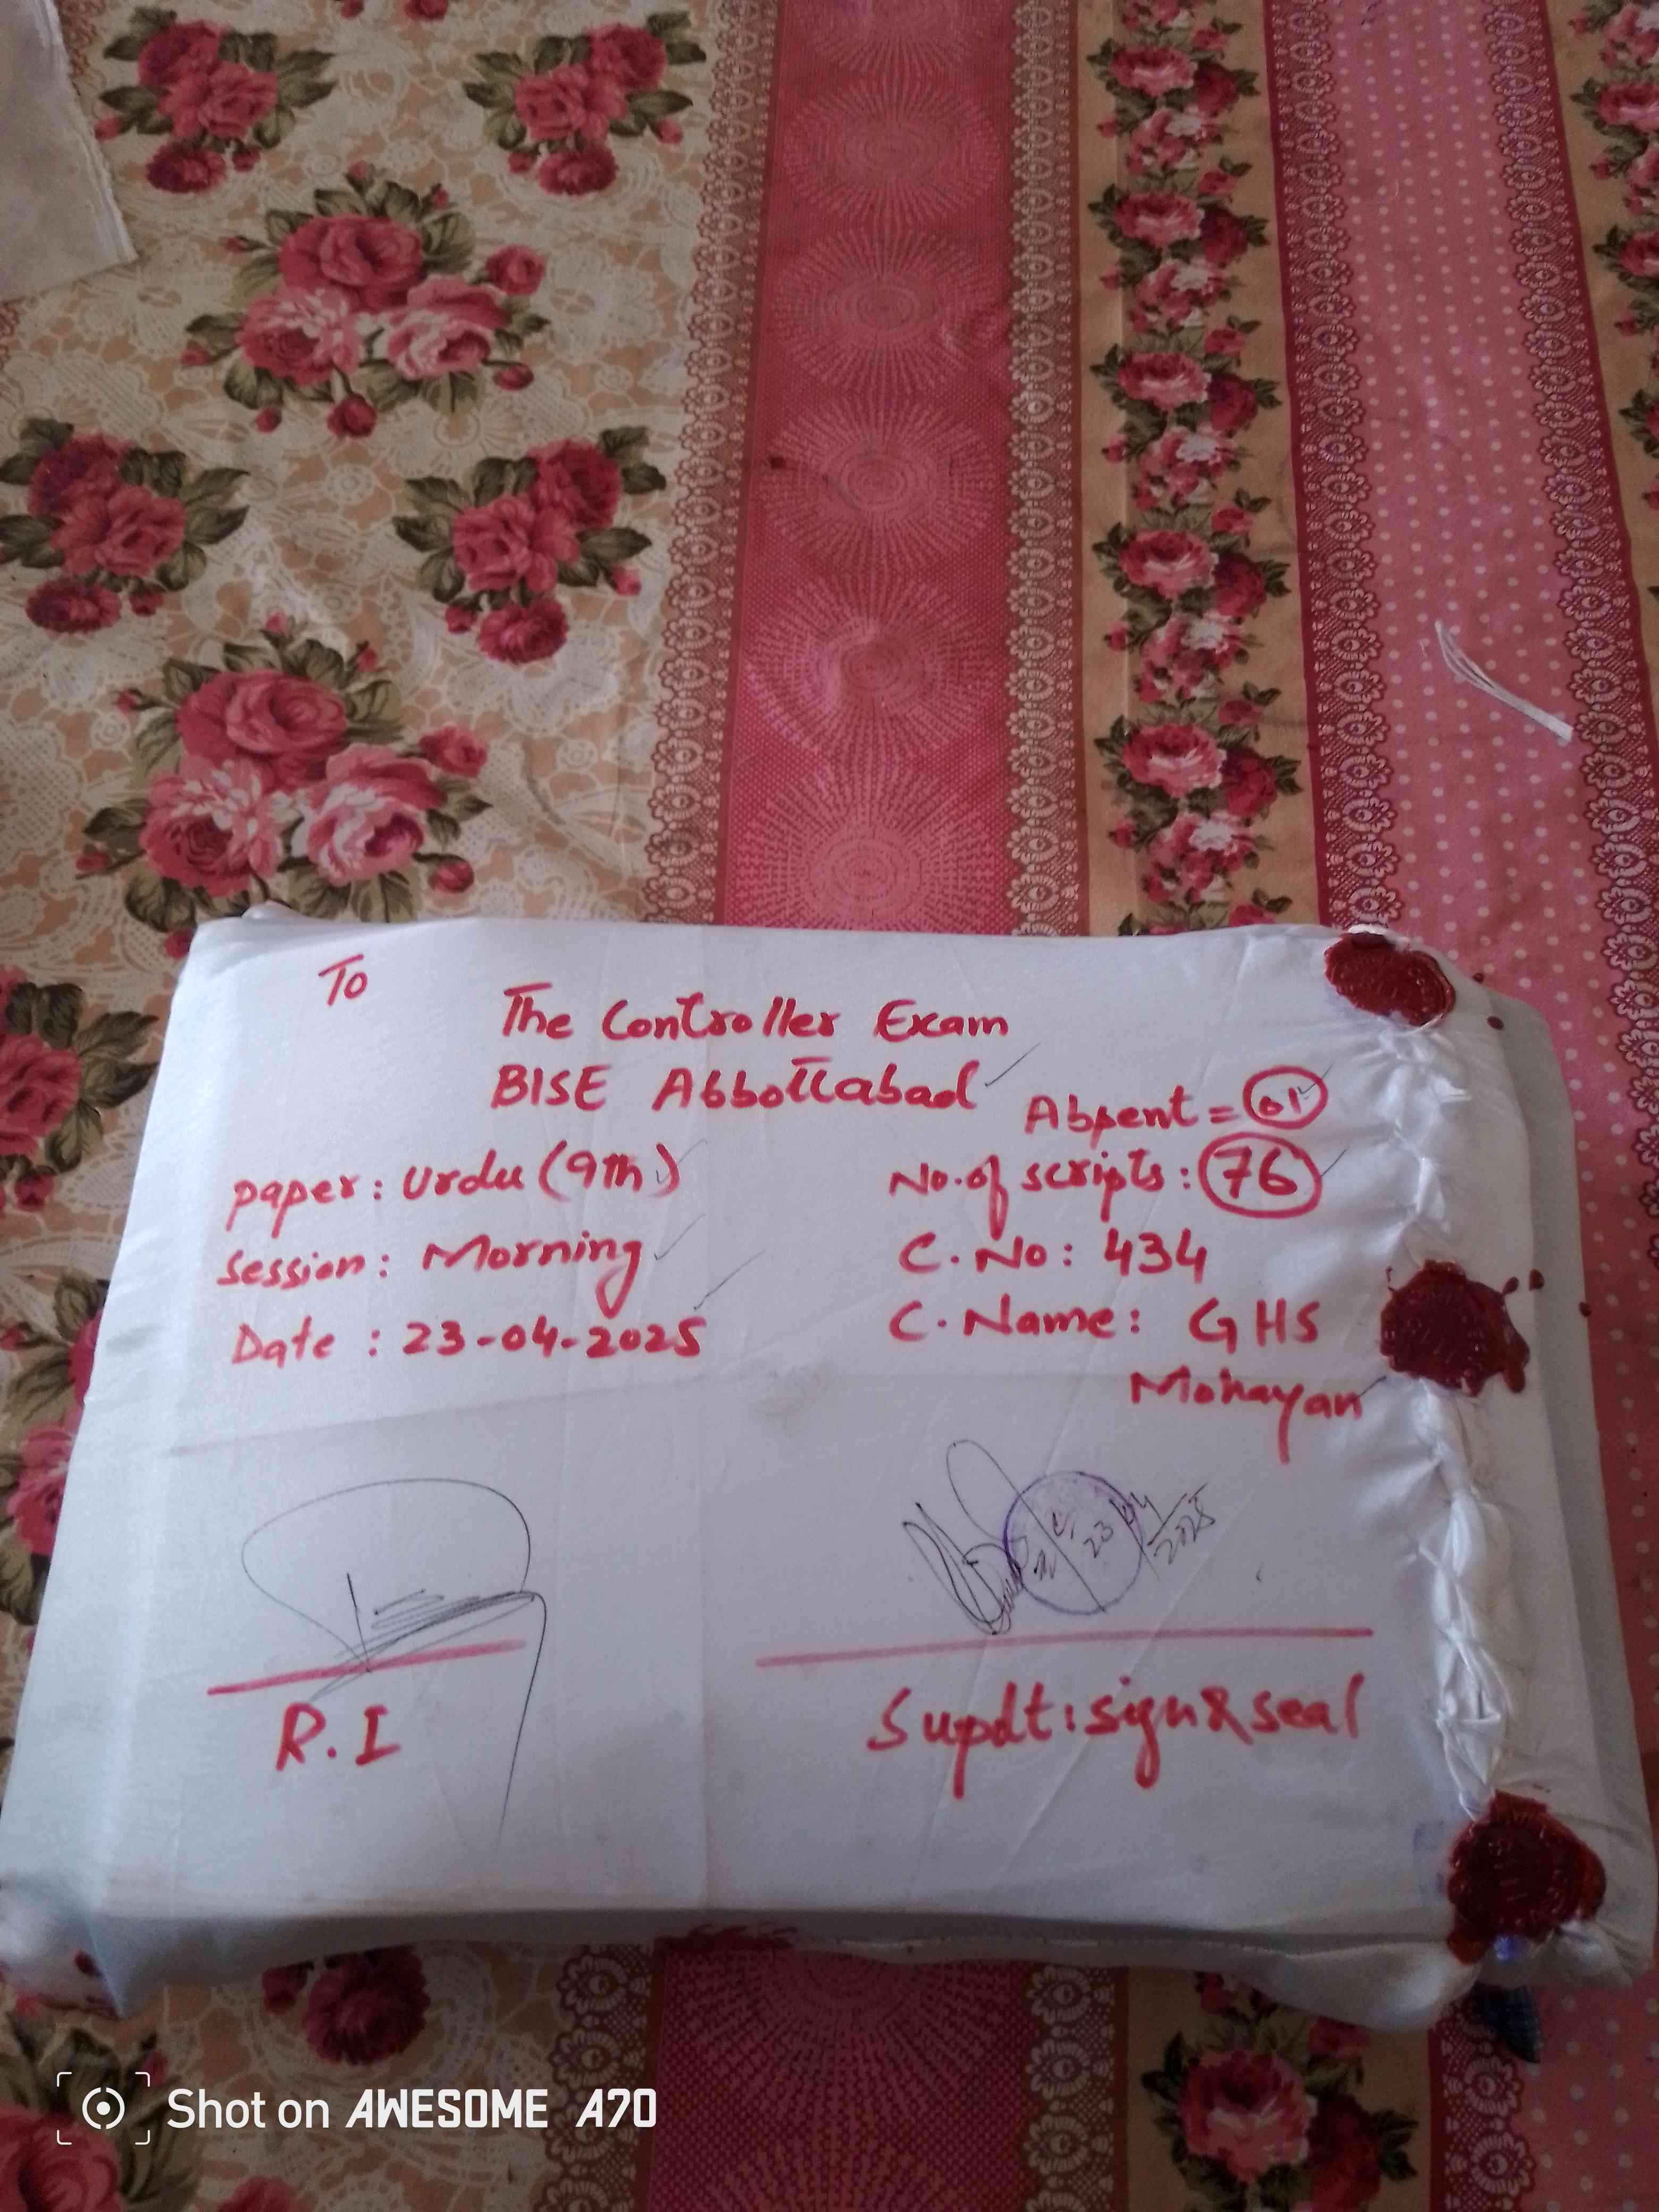 To
The Controller Exam
BISE Abbottabad
Absent = 01
paper: Urdu (9th)
No. of scripts: 76
session: Morning
C. No: 434
Date : 23-04-2025
C. Name: GHS
Mohayan
23/04/2025
R.I
Supdt: sign & seal
Shot on AWESOME A70